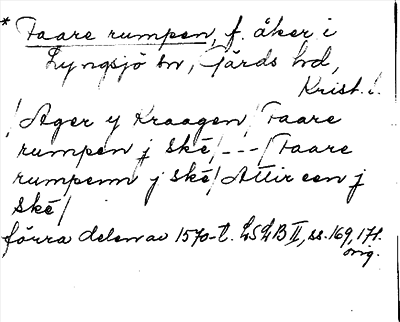 * Faare rumpen, f. åker i
Lyngsjö sn, Gärds hd,
Krist. l.
/Ager y Kraagen/Faare
rumpen j ske/---/Faare
rumpenn j ske/Attir een j
ske/
förra delen av 1570-t. LSLB II, ss. 169, 171.
orig.